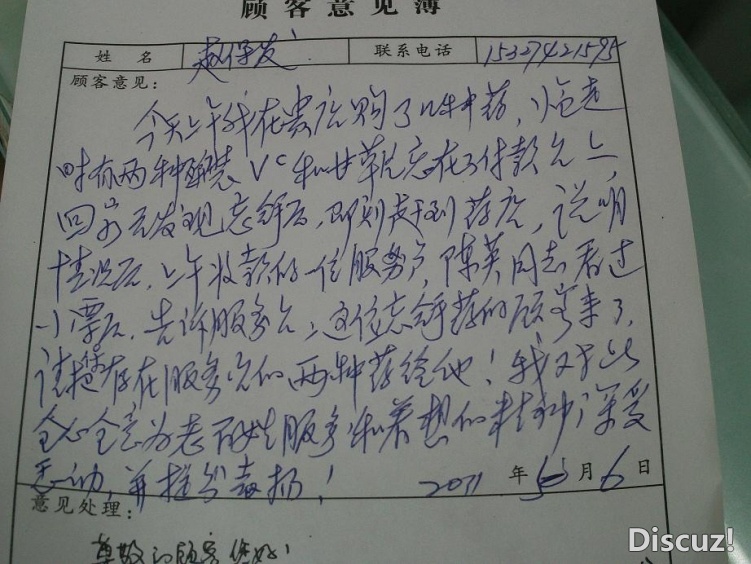 顾客意见簿
姓名 赵保发 联系电话 15327421595
顾客意见:
今天上午我在贵店购了几种中药,临走
时有两种 装VC和甘草片忘在了付款台上,
回家后发现忘拿后,即刻赶到药店,说明
情况后,上午收款的一位服务员,陈英同志看过
小票后,告诉服务台:这位忘拿药的顾客来了,
请把存在服务台的两种药给他!我对此
全心全意为老百姓服务和着想的精神深受
感动,并提出表扬!
2011年 月6日
意见处理:
尊敬的顾客您好!
Discuz!